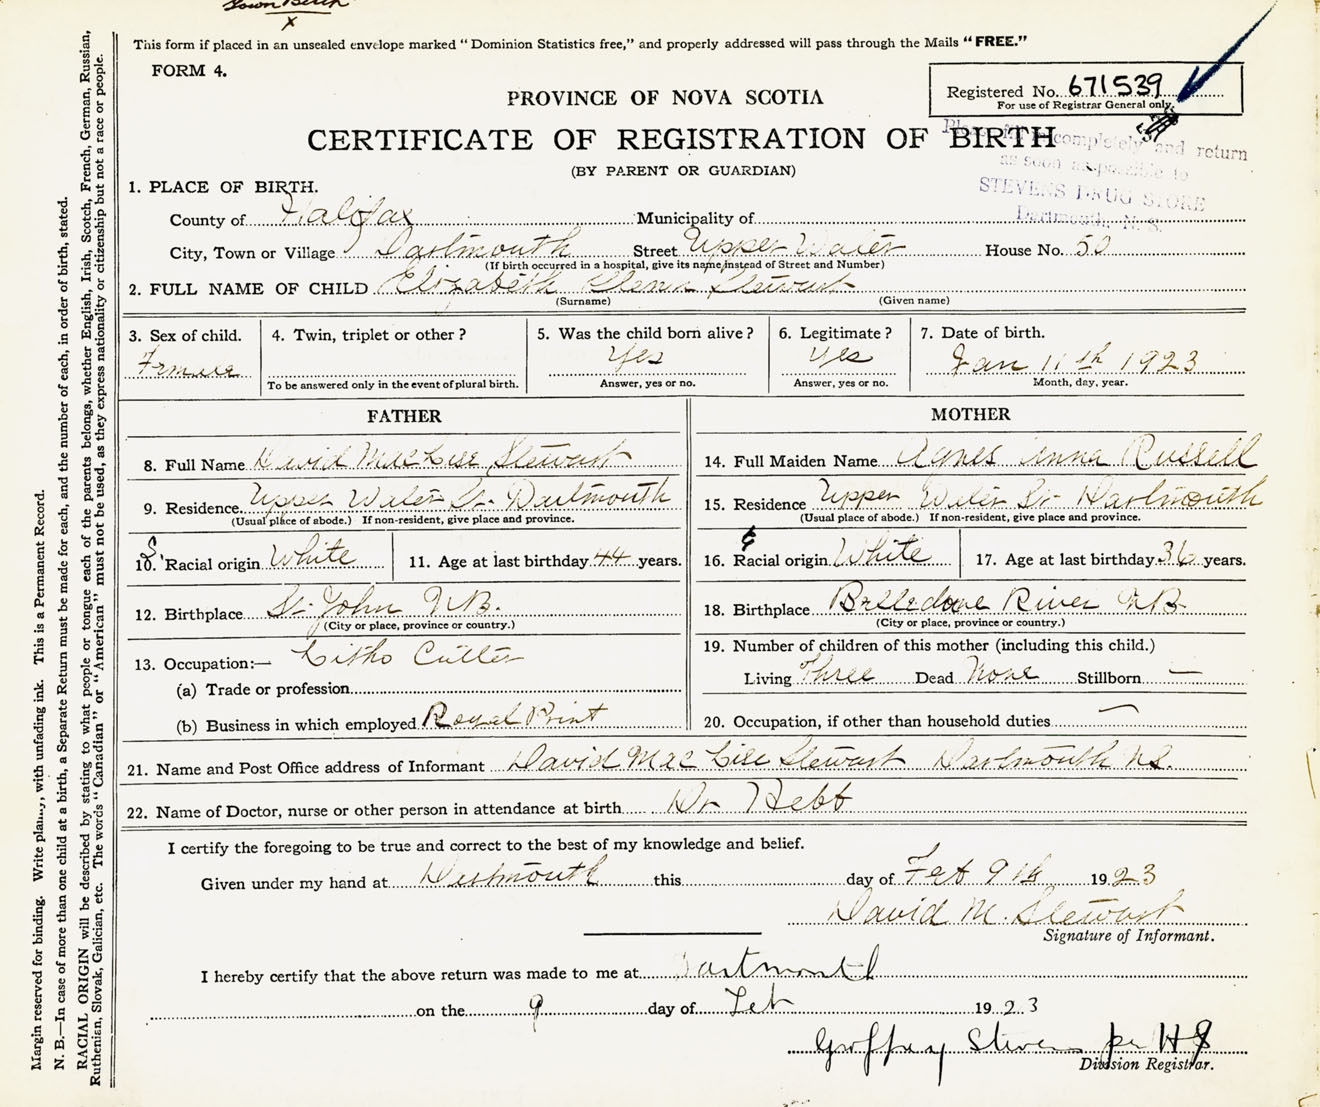 Town Birth
X
This form if placed in an unsealed envelope marked “Dominion Statistics free,” and properly addressed will pass through the Mails “FREE.”
FORM 4.
Registered No. 671539
For use of Registrar General only.
PROVINCE OF NOVA SCOTIA
CERTIFICATE OF REGISTRATION OF BIRTH
(BY PARENT OR GUARDIAN)
completely and return
as soon as possible to
STEVENS DRUG STORE
Dartmouth, N. S.
1. PLACE OF BIRTH.
County of Halifax Municipality of
City, Town or Village Dartmouth Street Upper Water House No. 50
(If birth occurred in a hospital, give its name, instead of Street and Number)
2. FULL NAME OF CHILD Elizabeth Stewart
(Surname) (Given name)
3. Sex of child. 4. Twin, triplet or other? 5. Was the child born alive? 6. Legitimate? 7. Date of birth.
Female Yes Yes Jan 11th 1923
To be answered only in the event of plural birth. Answer, yes or no. Answer, yes or no. Month, day, year.
FATHER MOTHER
8. Full Name David MacGill Stewart 14. Full Maiden Name Agnes Anna Russell
9. Residence Upper Water St. Dartmouth 15. Residence Upper Water St Dartmouth
(Usual place of abode.) If non-resident, give place and province. (Usual place of abode.) If non-resident, give place and province.
10. Racial origin White 11. Age at last birthday 44 years. 16. Racial origin White 17. Age at last birthday 36 years.
12. Birthplace St. John N.B. 18. Birthplace River N.B.
(City or place, province or country.) (City or place, province or country.)
13. Occupation:— Litho Cutter 19. Number of children of this mother (including this child.)
(a) Trade or profession Living Three Dead None Stillborn —
(b) Business in which employed Royal Print 20. Occupation, if other than household duties —
21. Name and Post Office address of Informant David MacGill Stewart Dartmouth N.S.
22. Name of Doctor, nurse or other person in attendance at birth Dr Hebb
I certify the foregoing to be true and correct to the best of my knowledge and belief.
Given under my hand at Dartmouth this day of Feb 9th 1923
David M. Stewart
Signature of Informant.
I hereby certify that the above return was made to me at Dartmouth
on the 9 day of Feb 1923
Geoffrey Stevens per H
Division Registrar.
Margin reserved for binding. Write plainly, with unfading ink. This is a Permanent Record.
N. B.—In case of more than one child at a birth, a Separate Return must be made for each, and the number of each, in order of birth, stated.
RACIAL ORIGIN will be described by stating to what people or tongue each of the parents belongs, whether English, Irish, Scotch, French, German, Russian,
Ruthenian, Slovak, Galician, etc. The words “Canadian” or “American” must not be used, as they express nationality or citizenship but not a race or people.